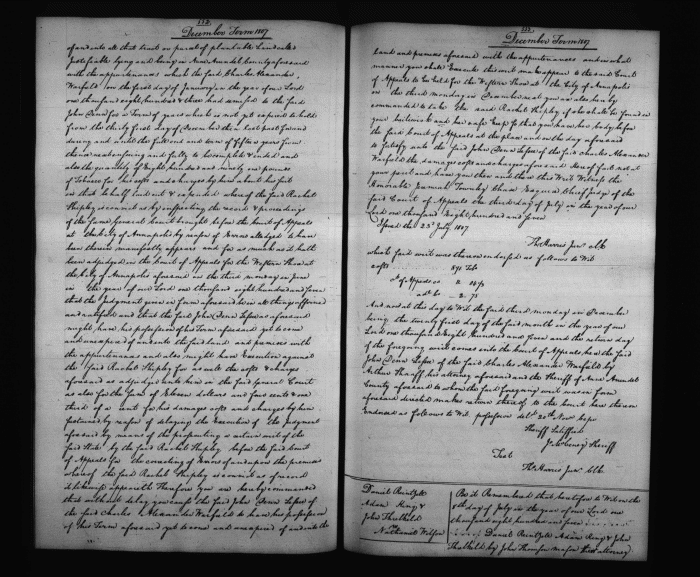 132
December Term 1807
of and unto all that tract or parcel of plantable Land called
Justifiable lying and being in Ann Arundel County aforesaid
with the appurtenances which the said Charles Alexander
Warfield on the first day of January in the year of our Lord
one thousand eight hundred & three had demised to the said
John Denn for a Term of years which is not yet expired to hold
from the thirty first day of December then last past forward
during and until the full end and term of fifteen years from
thence next ensuing and fully to be complete & ended and
also the quantity of Eight hundred and ninety one pounds
of Tobacco for his costs and charges by him about his suit
in that behalf laid out & expended whereof the said Rachel
Shipley is convict as by inspecting the record & proceedings
of the same Judgment brought before the Court of Appeals
at the City of Annapolis by reason of Errors alledged to have
been therein manifestly appears and for as much as it hath
been adjudged in the Court of Appeals for the Western Shore at
the City of Annapolis aforesaid on the third monday in June
in the year of our Lord one thousand eight hundred and seven
that the Judgment given in form aforesaid be in all things affirmed
and ratified and that the said John Denn Lessee as aforesaid
might have his possession of his Term aforesaid yet to come
and unexpired of and unto the land and premises with the
appurtenances and also might have Execution against
the said Rachel Shipley for as well the costs & charges
aforesaid as adjudged unto him in the said General Court
as also for the sum of Eleven dollars and four cents & one
third of a cent for his damages costs and charges by him
sustained by reason of delaying the Execution of the Judgment
aforesaid by means of the prosecuting a certain writ of the
said State by the said Rachel Shipley before the said Court
of Appeals for the correcting of Errors of and upon the premises
whereof the said Rachel Shipley is convict as of record
it likewise appeareth Therefore you are hereby commanded
that without delay you cause the said John Denn Lessee of
the said Charles Alexander Warfield to have his possession
of his Term aforesaid yet to come and unexpired of and unto the
133
December Term 1807
land and premises aforesaid with the appurtenances and in what
manner you shall Execute this writ make appear to the said Court
of Appeals to be held for the Western Shore at the City of Annapolis
on the third monday in December next you are also hereby
commanded to take the said Rachel Shipley if she shall be found in
your bailiwick and her safe keep so that you have her body before
the said Court of Appeals at the place and on the day aforesaid
to satisfy unto the said John Denn Lessee of the said Charles Alexander
Warfield the damages costs and charges aforesaid hereof fail not at
your peril and have you then and there this Writ Witness the
Honorable Jeremiah Townley Chase Esquire Chief Judge of the
said Court of Appeals the third day of July in the year of our
Lord one thousand Eight hundred and seven
Issued the 23d July 1807
Th: Harris Junr Clk
which said writ was thereon endorsed as follows to Wit
costs 891 Tob
And now at this day to Wit the said third monday in December
being the twenty first day of the said month in the year of our
Lord one thousand Eight hundred and seven and the return day
of the foregoing writ comes into the Court of Appeals here the said
John Denn Lessee of the said Charles Alexander Warfield by
Arthur Shaaff his attorney aforesaid and the Sheriff of Anne Arundel
County aforesaid to whom the said foregoing writ was in form
aforesaid directed makes return thereof to the Court here thereon
Endorsed as follows to Wit. possession deld. 20th Novr 1807
Sheriff Satisfied
Sheriff
Test
Th: Harris Junr Clk
Daniel Reintzell
Adam King &
John Threlkeld
vs
Nathaniel Wilson
Be it Remembered that heretofore to Wit on the
day of July in the year of our Lord one
thousand eight hundred and five
Daniel Reintzell Adam King & John
Threlkeld by John Thomson Mason their attorney